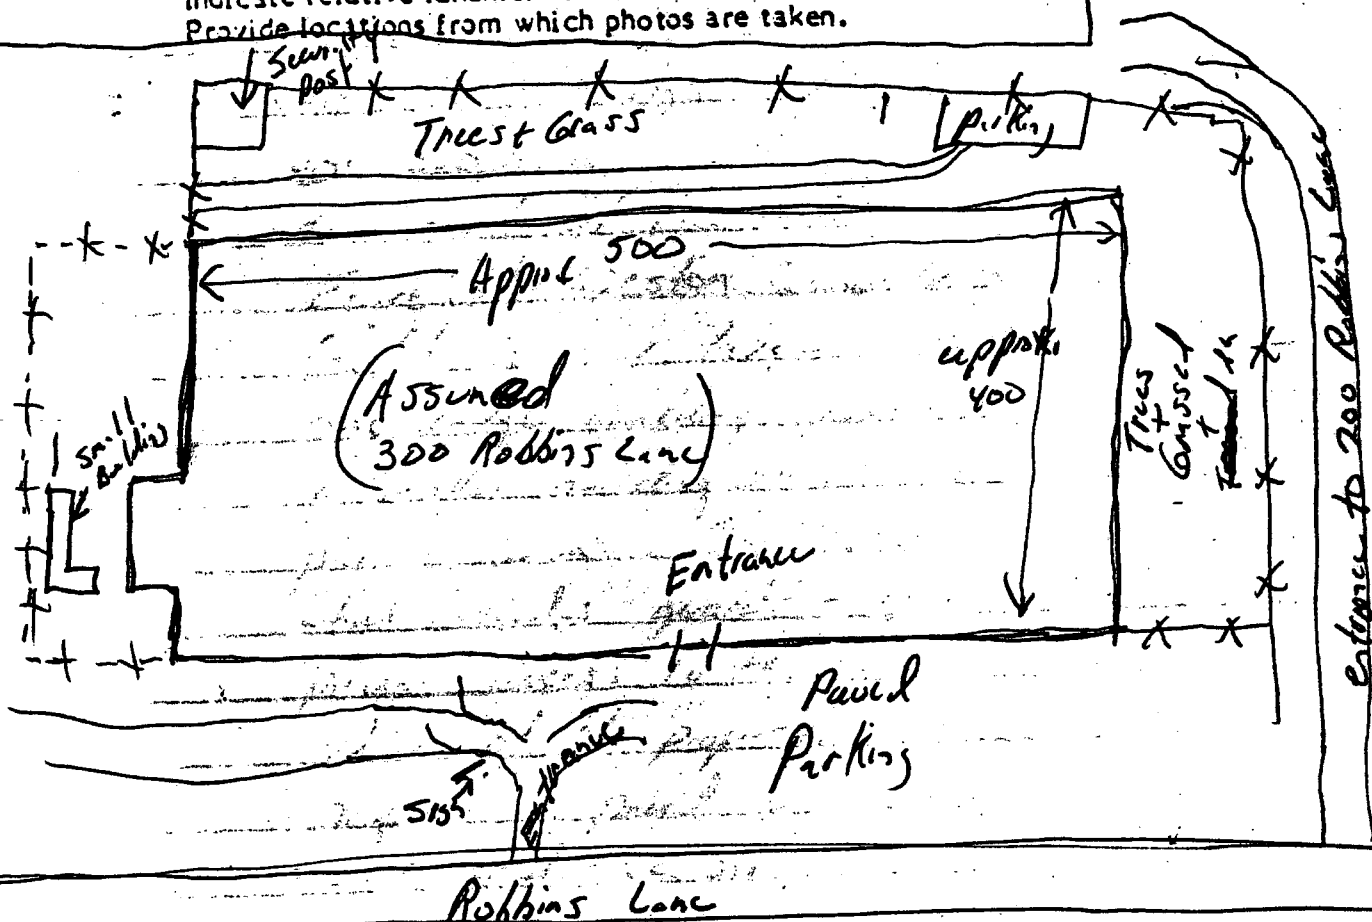 Provide locations from which photos are taken.
Security
Post
Trees + Grass
Parking
500
Approx
approx.
400
(Assumed
300 Robbins Lane)
Small
Building
Trees
+
Grassed
+
Entrance to 200 Robbins Lane
Entrance
Paved
Parking
Sign
Entrance
Robbins Lane